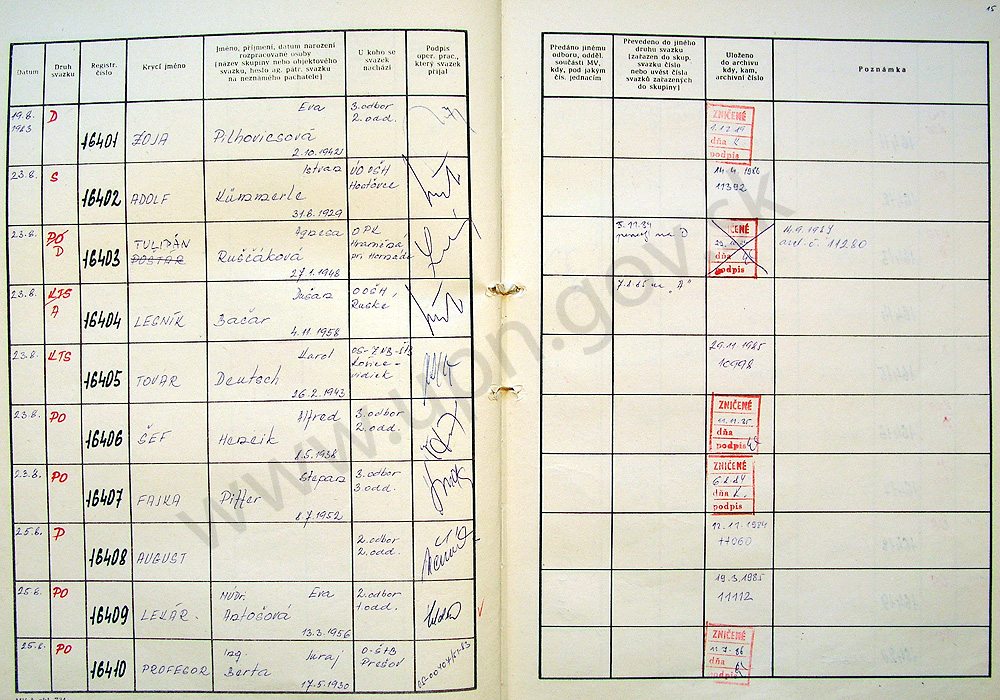 15
Datum
Druh
svazku
Registr.
číslo
Krycí jméno
Jméno, příjmení, datum narození
rozpracované osoby
(název skupiny nebo objektového
svazku, heslo ag. pátr. svazku
na neznámého pachatele)
U koho se
svazek
nachází
Podpis
oper. prac.,
který svazek
přijal
Předáno jinému
odboru, odděl.
součásti MV,
kdy, pod jakým
čís. jednacím
Převedeno do jiného
druhu svazku
(zařazen do skup.
svazku číslo
nebo uvést čísla
svazků zařazených
do skupiny)
Uloženo
do archivu
kdy, kam,
archivní číslo
Poznámka
19.8.
1983
D
16401
ZOJA
Eva
Pilhovicsová
2.10.1942
3. odbor
2. odd.
ZNIČENÉ
dňa
podpis
23.8.
S
16402
ADOLF
Istvan
Kümmerle
31.8.1929
ÚO OŠH
14.4.1986
11392
23.8.
PO
D
16403
TULIPÁN
POŠTÁR
Agnesa
Ruščáková
27.1.1948
OPK
pri Hornáde
5.11.84
na D
ZNIČENÉ
dňa
podpis
14.9.1987
arch. č. 11280
23.8.
KTS
A
16404
LESNÍK
Dušan
Bačár
4.11.1958
OOŠH,
Ruské
7.1.85 na "A"
23.8.
KTS
16405
TOVAR
Karol
Deutsch
26.2.1943
OS-ZNB-ŠtB
Košice-
vidiek
29.11.1985
10998
23.8.
PO
16406
ŠEF
Alfred
Hencik
1.5.1938
3. odbor
2. odd.
ZNIČENÉ
11.11.85
dňa
podpis
23.8.
PO
16407
FAJKA
Štepan
Piffer
8.7.1952
3. odbor
3. odd.
ZNIČENÉ
dňa
podpis
25.8.
P
16408
AUGUST
2. odbor
2. odd.
12.11.1984
11060
25.8.
PO
16409
LEKÁR.
MUDr. Eva
Antošová
13.3.1956
2. odbor
1. odd.
19.3.1985
11112
25.8.
PO
16410
PROFESOR
Ing. Juraj
Berta
17.5.1930
O-ŠtB
Prešov
ZNIČENÉ
dňa
podpis
www.upn.gov.sk